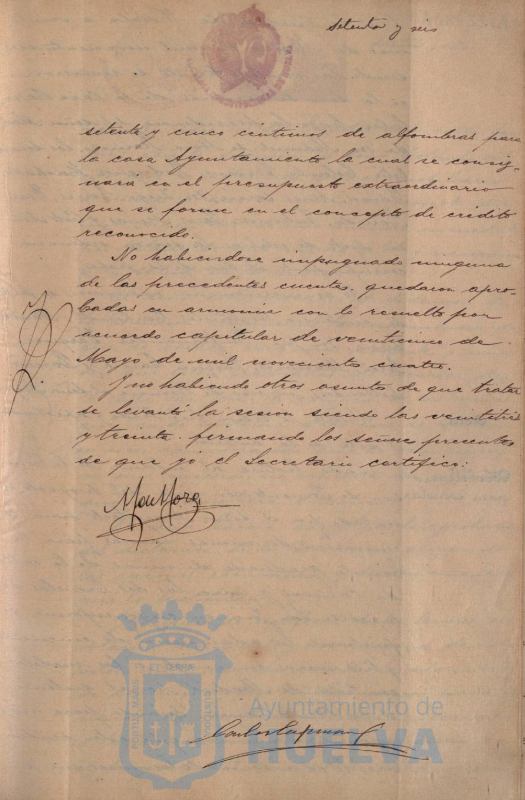 Setenta y seis
setenta y cinco céntimos de alfombras para
la casa Ayuntamiento la cual se consig-
nará en el presupuesto extraordinario
que se forme en el concepto de crédito
reconocido.
No habiendose impugnado ninguna
de las precedentes cuentas quedaron apro-
badas en armonia con lo resuelto por
acuerdo capitular de veinticinco de
Mayo de mil novecientos cuatro.
Y no habiendo otros asuntos de que tratar
se levantó la sesion siendo las veintitrés
y treinta firmando los señores presentes
de que yó el Secretario certifico:
PORTUS MARIS ET TERRÆ CUSTODIA
Ayuntamiento de
HUELVA